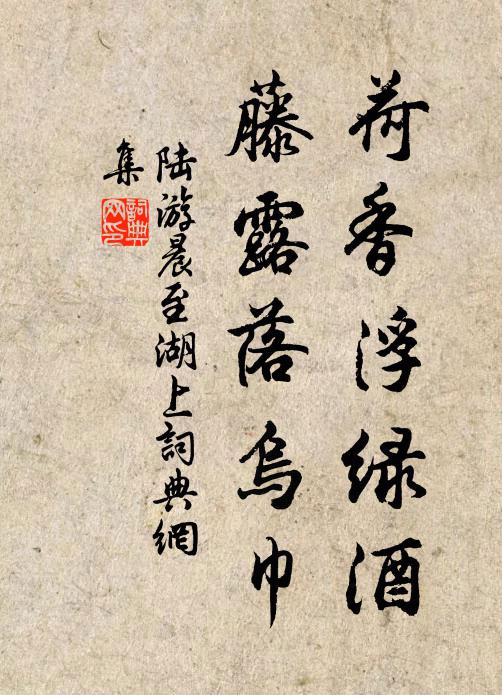 荷香浮绿酒
藤露落乌巾
陆游晨至湖上詞典網
集
詞典
网印